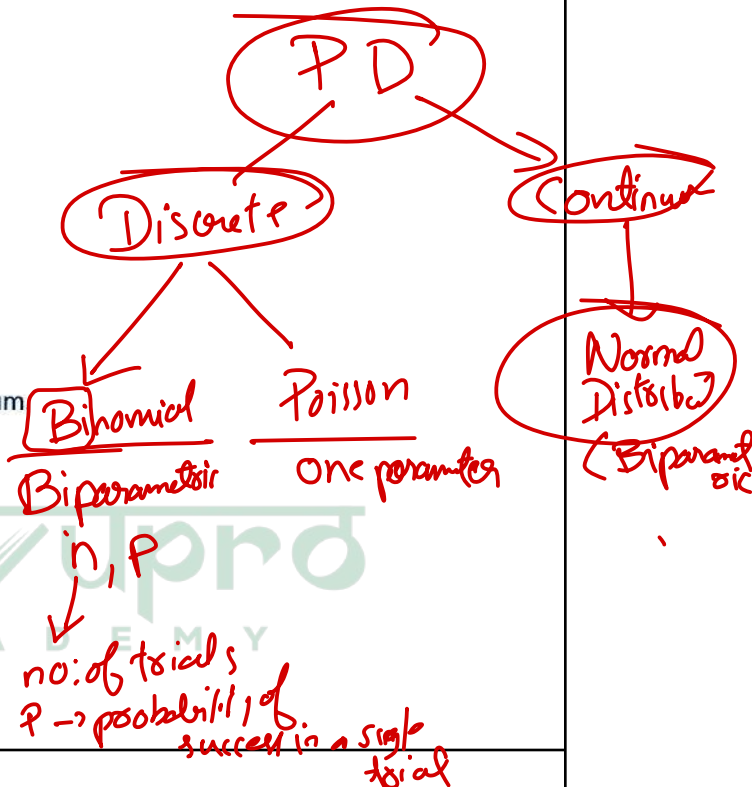 PD
Discrete
Continuous
Binomial
Poisson
Normal
Distribut
um
Biparametric
One parameter
(Biparametric
n, P
upro
A D E M Y
no: of trials
P -> probability of
success in a single
trial